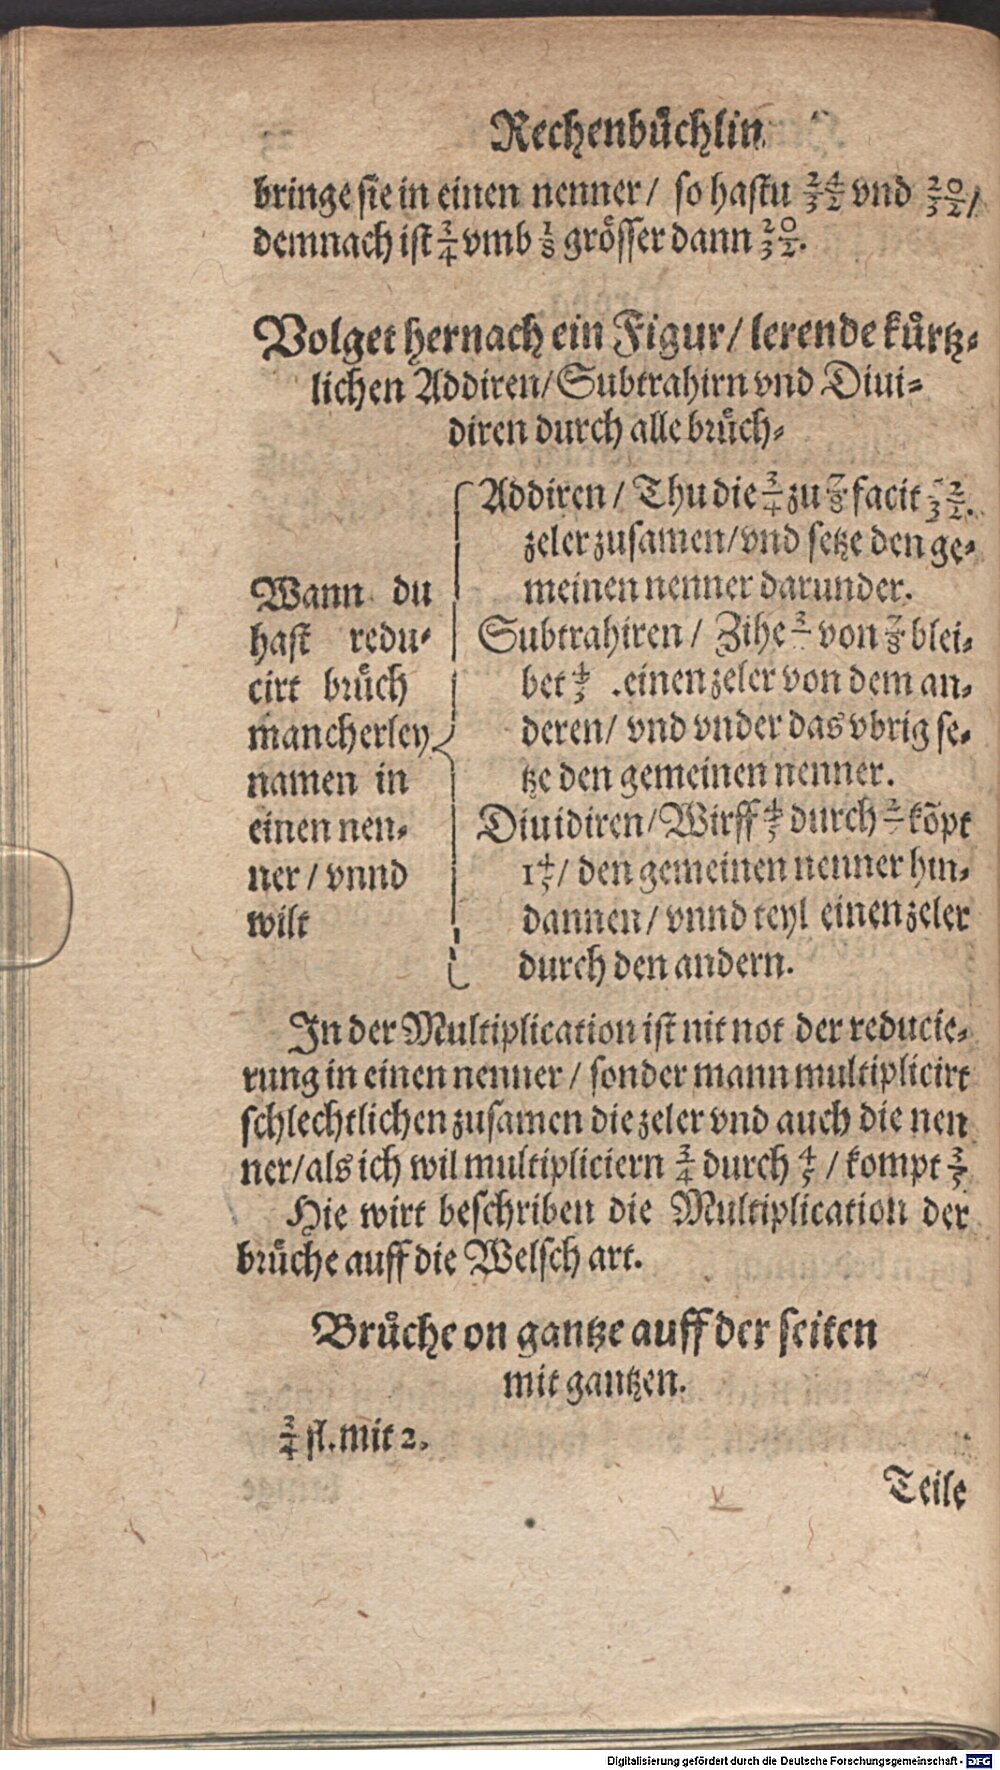 Rechenbuͤchlin
bringe sie in einen nenner / so hastu 24/32 vnd 20/32 /
demnach ist 3/4 vmb 1/8 groͤsser dann 20/32.
Volget hernach ein Figur / lerende kuͤrtz⸗
lichen Addiren / Subtrahirn vnd Diui⸗
diren durch alle bruͤch⸗
Wann du
hast redu⸗
cirt bruͤch
mancherley
namen in
einen nen⸗
ner / vnnd
wilt
Addiren / Thu die 3/4 zu facit
zeler zusamen / vnd setze den ge⸗
meinen nenner darunder.
Subtrahiren / Zihe von blei⸗
bet . einen zeler von dem an⸗
deren / vnd vnder das vbrig se⸗
tze den gemeinen nenner.
Diuidiren / Wirff durch koͤpt
/ den gemeinen nenner hin⸗
dannen / vnnd teyl einen zeler
durch den andern.
In der Multiplication ist nit not der reducie⸗
rung in einen nenner / sonder mann multiplicirt
schlechtlichen zusamen die zeler vnd auch die nen
ner / als ich wil multipliciern 3/4 durch 4/5 / kompt 3/5
Hie wirt beschriben die Multiplication der
bruͤche auff die Welsch art.
Bruͤche on gantze auff der seiten
mit gantzen.
3/4 fl. mit 2.
Teile
Digitalisierung gefördert durch die Deutsche Forschungsgemeinschaft - DFG